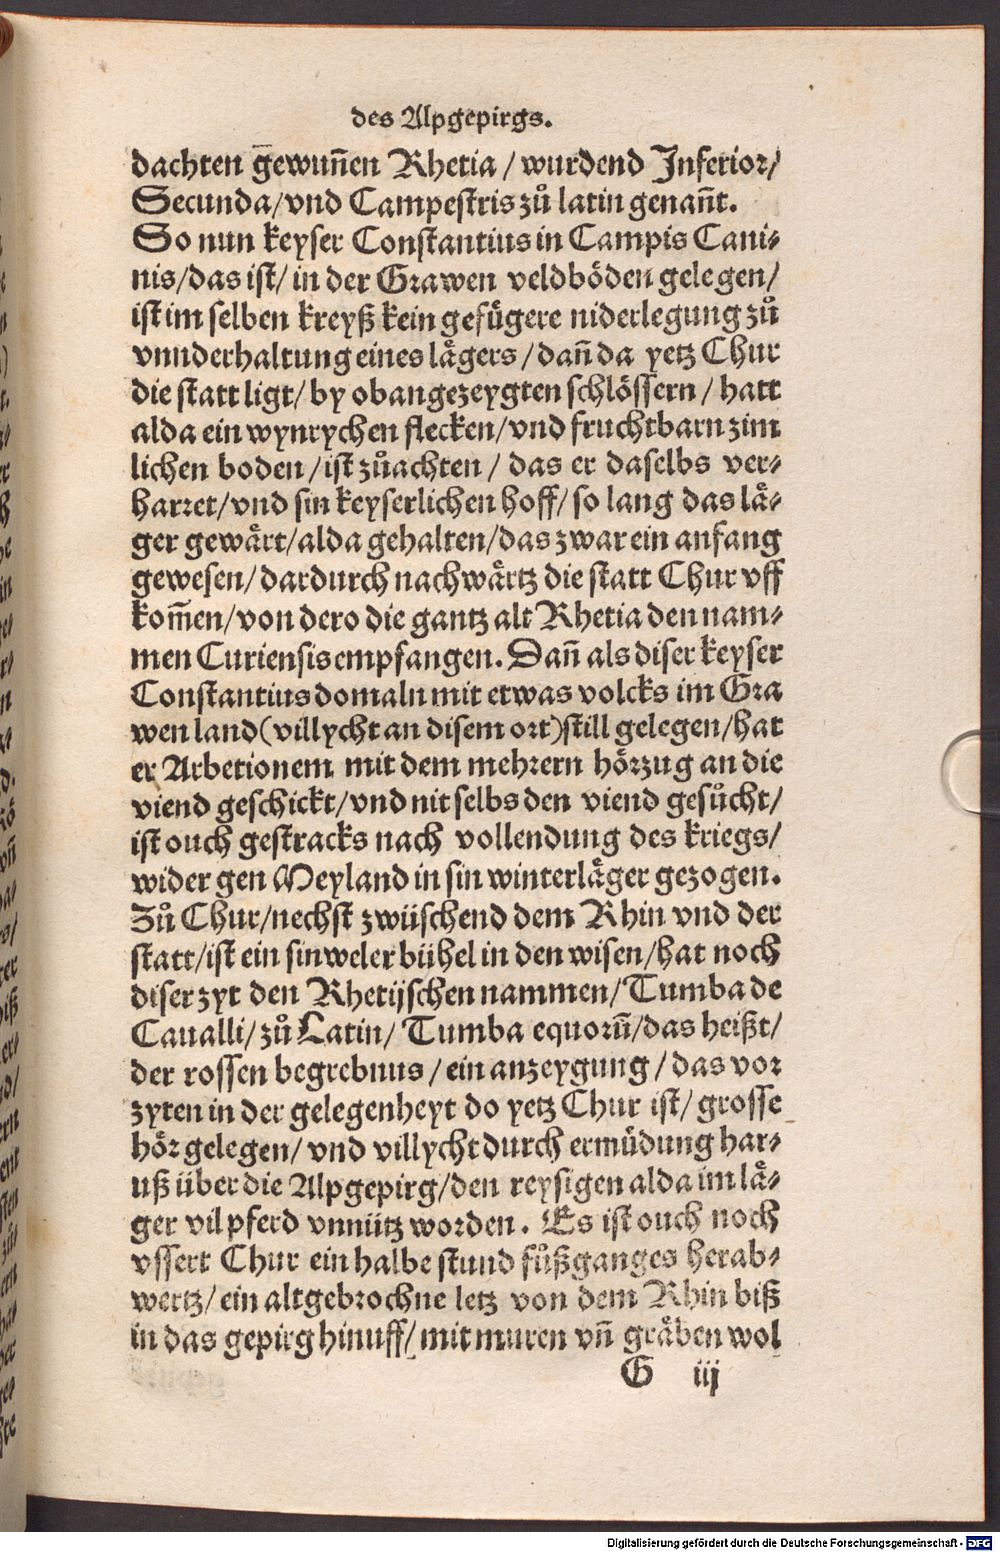 des Alpgepirgs.
dachten gewuñen Rhetia / wurdend Inferior /
Secunda / vnd Campestris zů latin genañt.
So nun keyser Constantius in Campis Cani⸗
nis / das ist / in der Grawen veldböden gelegen /
ist im selben kreyß kein gefůgere niderlegung zů
vnnderhaltung eines lågers / dañ da yetz Chur
die statt ligt / by obangezeygten schlössern / hatt
alda ein wynrychen flecken / vnd fruchtbarn zim
lichen boden / ist zůachten / das er daselbs ver⸗
harret / vnd sin keyserlichen hoff / so lang das lå⸗
ger gewårt / alda gehalten / das zwar ein anfang
gewesen / dardurch nachwårtz die statt Chur vff
kom̃en / von dero die gantz alt Rhetia den nam⸗
men Curiensis empfangen. Dañ als diser keyser
Constantius domaln mit etwas volcks im Gra
wen land (villycht an disem ort) still gelegen / hat
er Arbetionem mit dem mehrern hörzug an die
viend geschickt / vnd nit selbs den viend gesůcht /
ist ouch gestracks nach vollendung des kriegs /
wider gen Meyland in sin winterlåger gezogen.
Zů Chur / nechst zwüschend dem Rhin vnd der
statt / ist ein sinweler bühel in den wisen / hat noch
diser zyt den Rhetijschen nammen / Tumba de
Caualli / zů Latin / Tumba equorũ / das heißt /
der rossen begrebnus / ein anzeygung / das vor
zyten in der gelegenheyt do yetz Chur ist / grosse
hör gelegen / vnd villycht durch ermüdung har⸗
uß über die Alpgepirg / den reysigen alda im lå⸗
ger vil pferd vnnütz worden. Es ist ouch noch
vssert Chur ein halbe stund fůßganges herab⸗
wertz / ein altgebrochne letz von dem Rhin biß
in das gepirg hinuff / mit muren vñ gråben wol
G iij
Digitalisierung gefördert durch die Deutsche Forschungsgemeinschaft - DFG